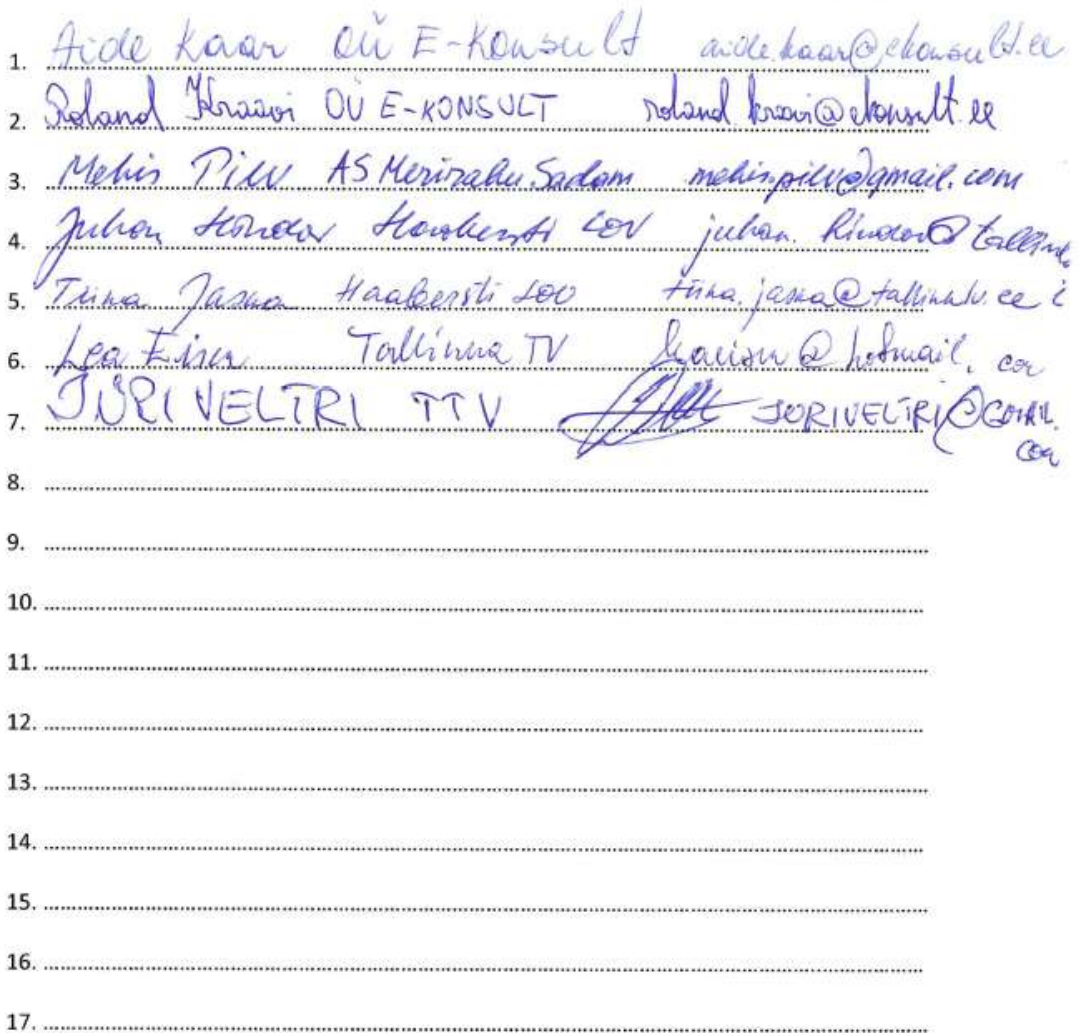 1. Aide Kaar OÜ E-Konsult aide.kaar@ekonsult.ee
2. Roland Kraavi OÜ E-KONSULT roland.kraavi@ekonsult.ee
3. Mehis Pilv AS Merirahu Sadam mehis.pilv@gmail.com
4. Juhan Hindov Haabersti LOV
5. Tiina Jasma Haabersti LOV tiina.jasma@tallinnlv.ee
6. Lea Eisen Tallinna TV
7. JÜRI VELTRI TTV JURIVELTRI@GMAIL.
com
8.
9.
10.
11.
12.
13.
14.
15.
16.
17.